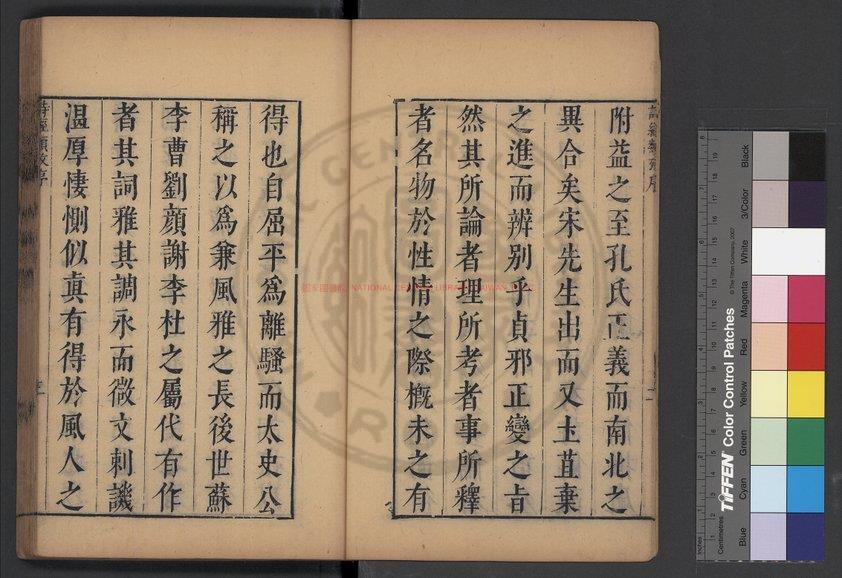 附益之至孔氏正義而南北之
異合矣宋先生出而又土苴棄
之進而辨別乎貞邪正變之旨
然其所論者理所考者事所釋
者名物於性情之際槪未之有
得也自屈平爲離騷而太史公
稱之以爲兼風雅之長後世蘇
李曹劉顏謝李杜之屬代有作
者其詞雅其調永而微文刺譏
温厚悽惻似真有得於風人之
國家圖書館 NATIONAL CENTRAL LIBRARY
TIFFEN Color Control Patches
© The Tiffen Company, 2007
Blue
Cyan
Green
Yellow
Red
Magenta
White
3/Color
Black
Inches
Centimetres